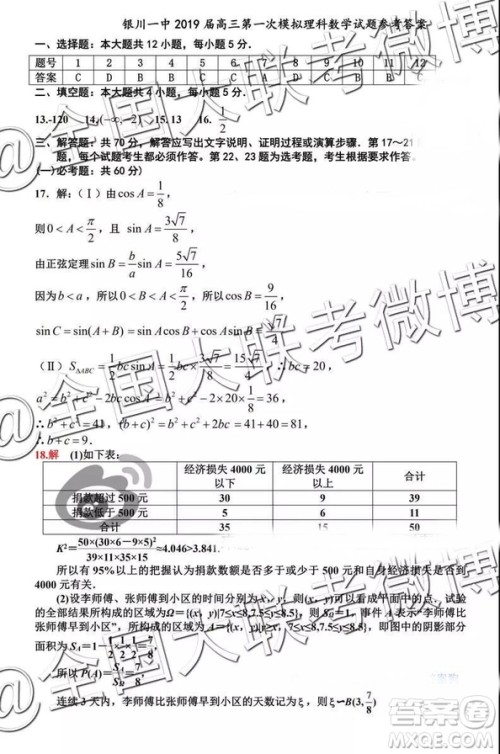 银川一中 2019 届高三第一次模拟理科数学试题参考答案
一、选择题：本大题共 12 小题，每小题 5 分．
题号 1 2 3 4 5 6 7 8 9 10 11 12
答案 C D B B C A
二、填空题：本大题共 4 小题，每小题 5 分．
13.-120 14.(-∞,-2] 15. 13 16. 1/2
三、解答题：共 70 分，解答应写出文字说明、证明过程或演算步骤．第 17～21
题，每个试题考生都必须作答。第 22、23 题为选考题，考生根据要求作答．
(一)必考题：共 60 分)
17. 解：（Ⅰ）由 cos A = 1/8，
则 0 < A < π/2，且 sin A = 3√7/8，
由正弦定理 sin B = b/a sin A = 5√7/16，
因为 b < a，所以 0 < B < A < π/2，所以 cos B = 9/16，
sin C = sin(A + B) = sin A cos B + cos A sin B = √7/4
（Ⅱ）S△ABC = 1/2 bc sin A = 1/2 bc × 3√7/8 = 15√7/4 ∴ bc = 20，
a² = b² + c² - 2bc cos A = b² + c² - 2×20×1/8 = 36，
∴ b² + c² = 41，(b+c)² = b² + c² + 2bc = 41 + 40 = 81，
∴ b + c = 9．
18.解 (1)如下表：
经济损失 4000 元以下 经济损失 4000 元以上 合计
捐款超过 500 元 30 9 39
捐款低于 500 元 5 6 11
合计 35 15 50
K²=50×(30×6-9×5)²/39×11×35×15≈4.046>3.841.
所以有 95%以上的把握认为捐款数额是否多于或少于 500 元和自身经济损失是否到
4000 元有关．
(2)设李师傅、张师傅到小区的时间分别为 x，y，则(x，y)可以看成平面中的点．试
验的全部结果所构成的区域为 Ω={(x，y)|7≤x≤8,7.5≤y≤8.5}，则 SΩ=1，事件 A 表示“李师傅比
张师傅早到小区”，所构成的区域为 A={(x，y)|y≥x，7≤x≤8,7.5≤y≤8.5}，即图中的阴影部分
面积为 SA=1-1/2×1/2×1/2=7/8，
所以 P(A)=SA/SΩ=7/8，
连续 3 天内，李师傅比张师傅早到小区的天数记为 ξ，则 ξ∽B(3,7/8)
@全国大联考微博
@全国大联考微博